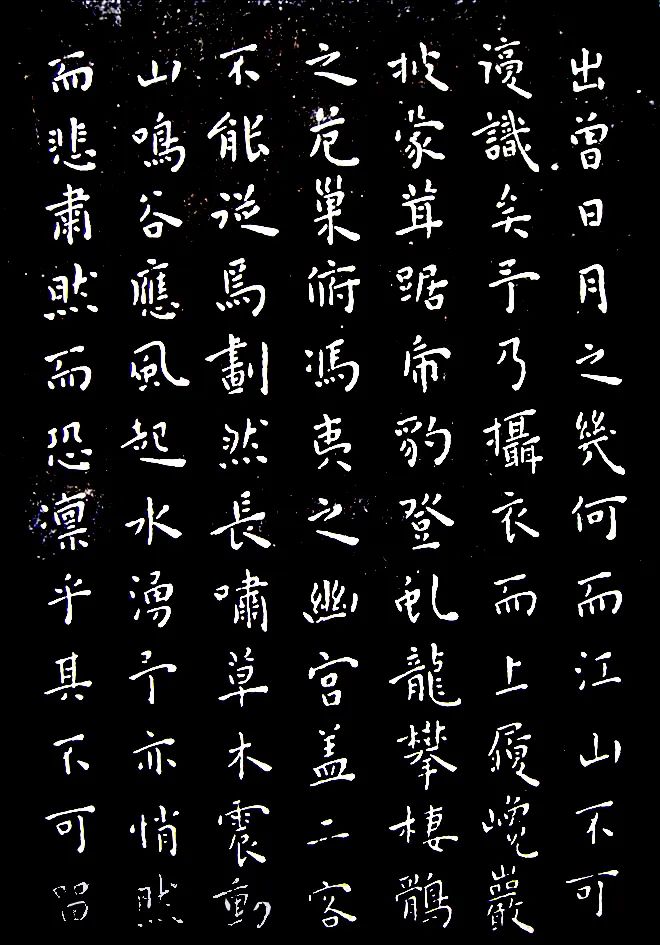 出曾日月之幾何而江山不可
復識矣予乃攝衣而上履巉巖
披蒙茸踞虎豹登虬龍攀棲鶻
之危巢俯馮夷之幽宮盖二客
不能從焉劃然長嘯草木震動
山鳴谷應風起水湧予亦悄然
而悲肅然而恐凜乎其不可留